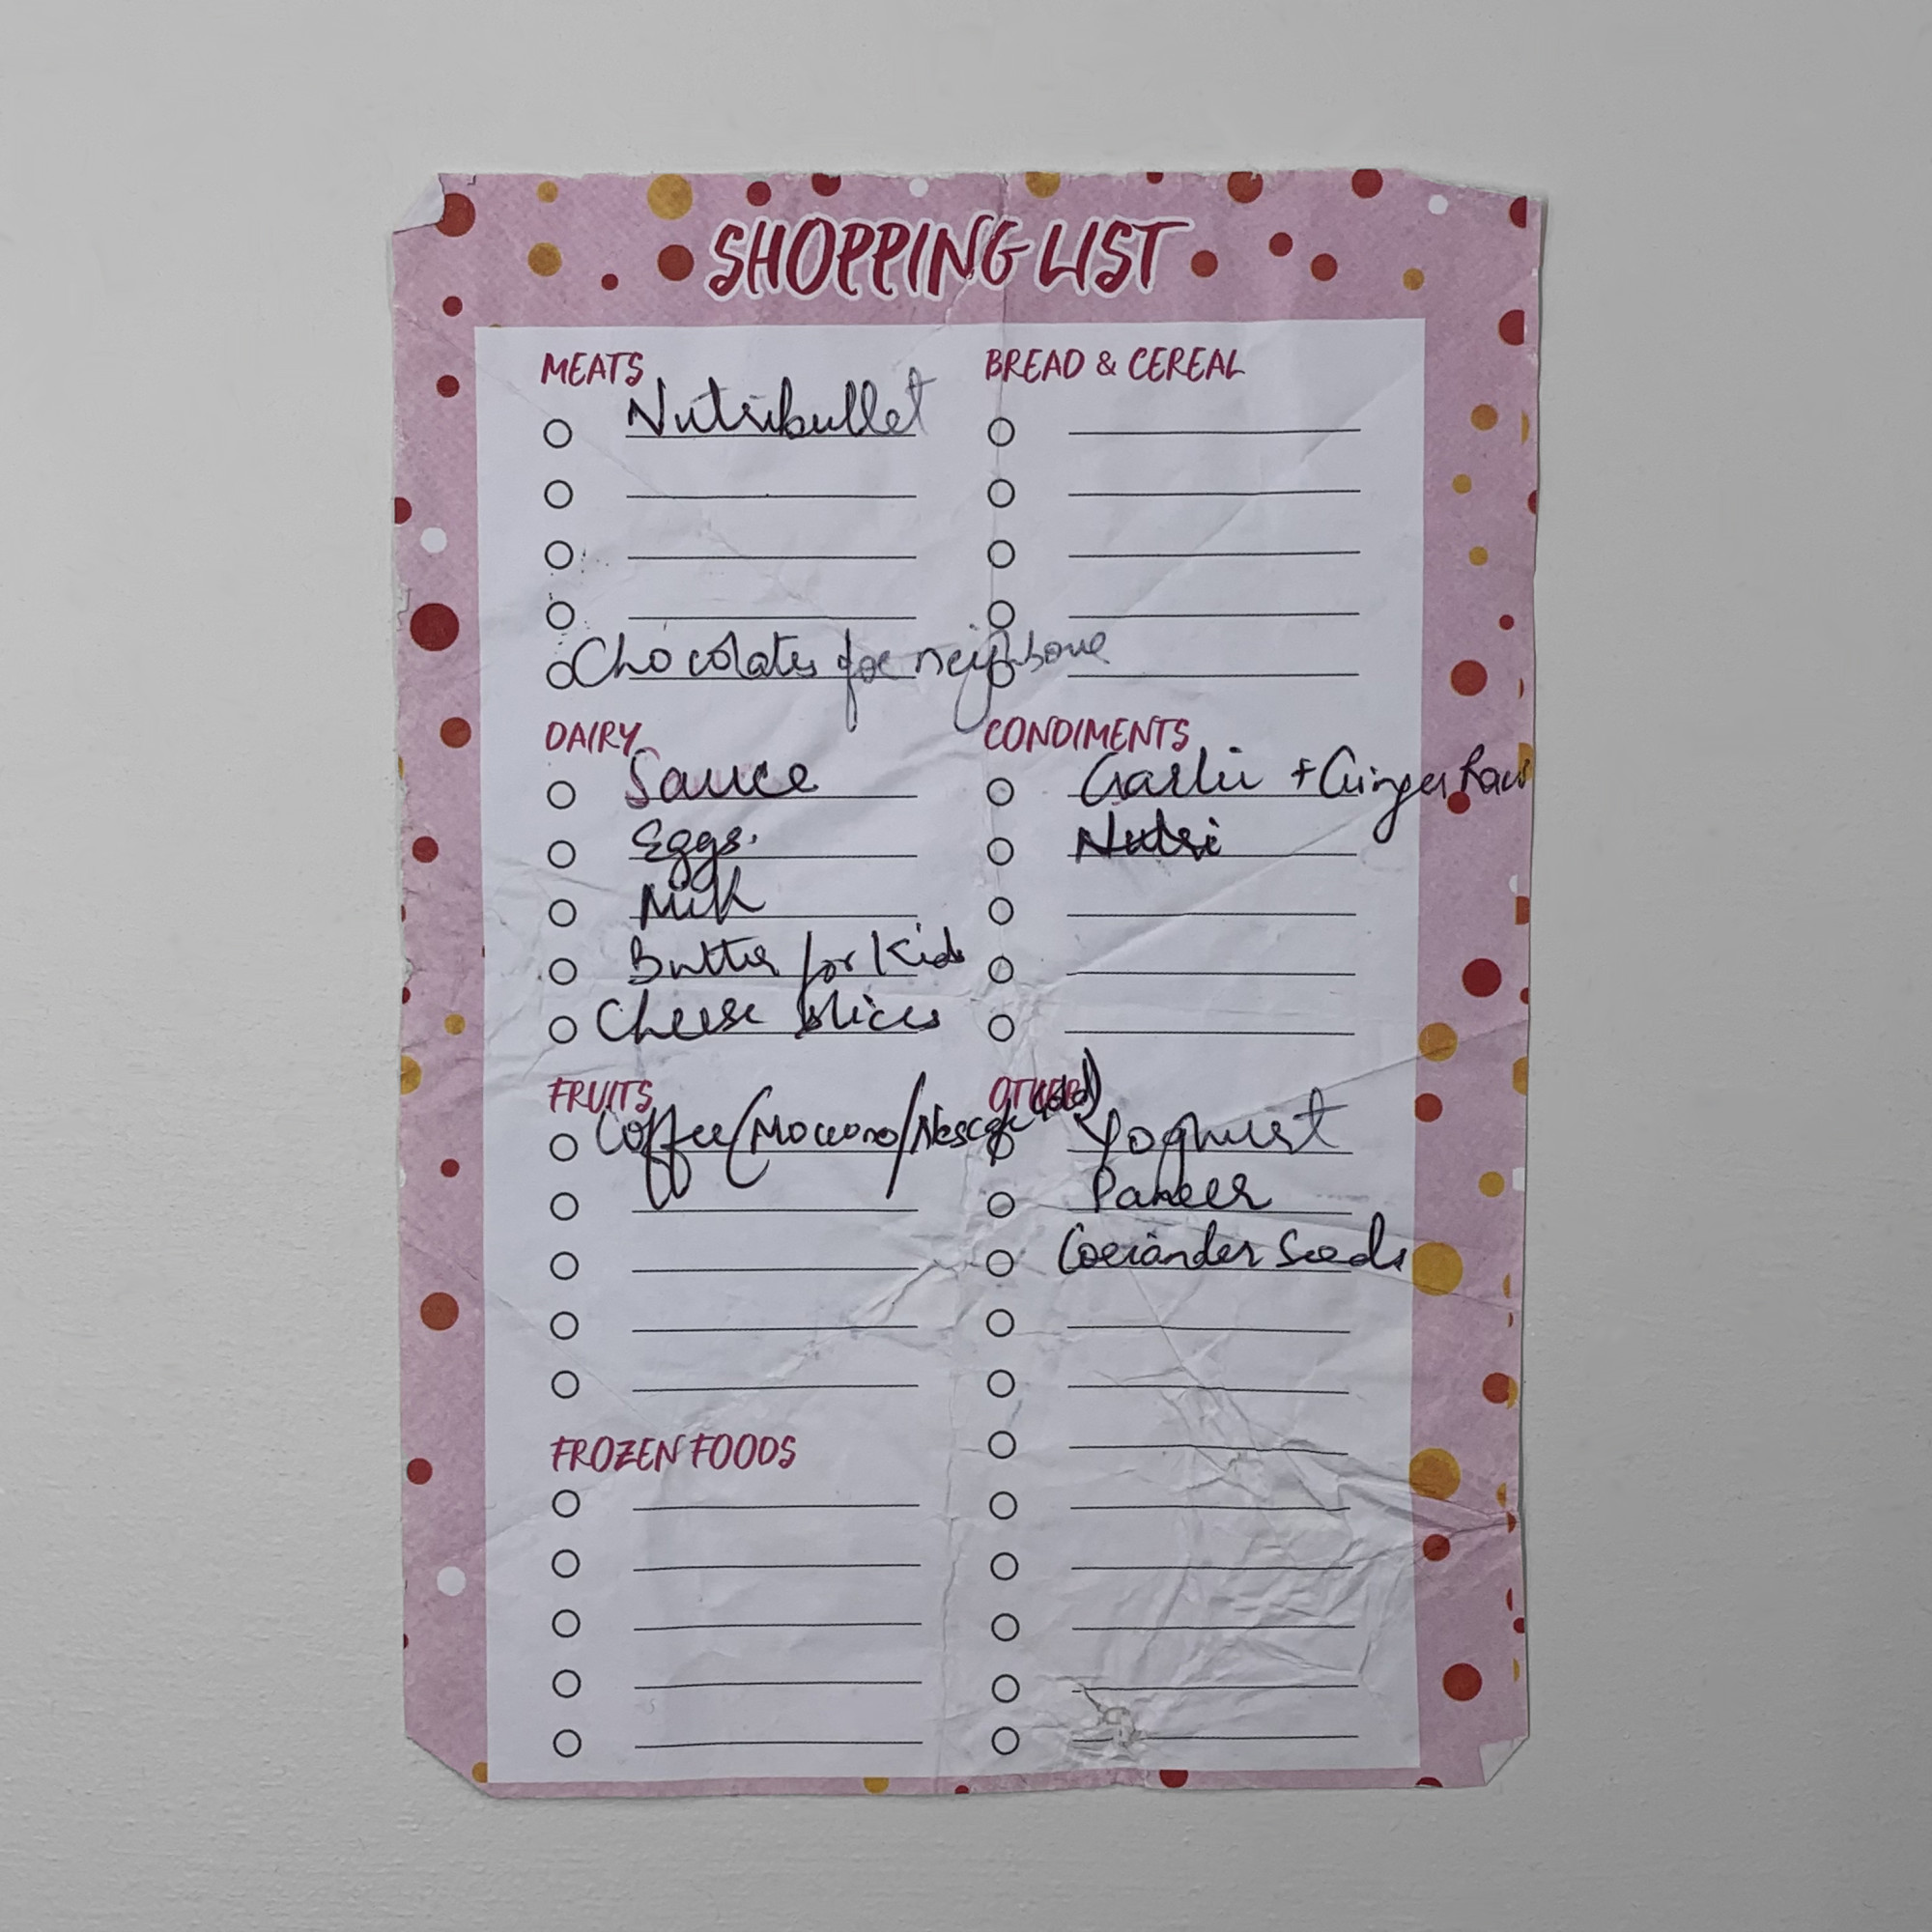 SHOPPING LIST
MEATS
Nutribullet
Chocolates for neighbour
BREAD & CEREAL
DAIRY
Sauce
Eggs.
Milk
Butter for Kids
Cheese slices
CONDIMENTS
Garlic + Ginger
Nutri
FRUITS
Coffee (Moccona/Nescafe Gold)
OTHER
Yoghurt
Paneer
Coriander Seeds
FROZEN FOODS